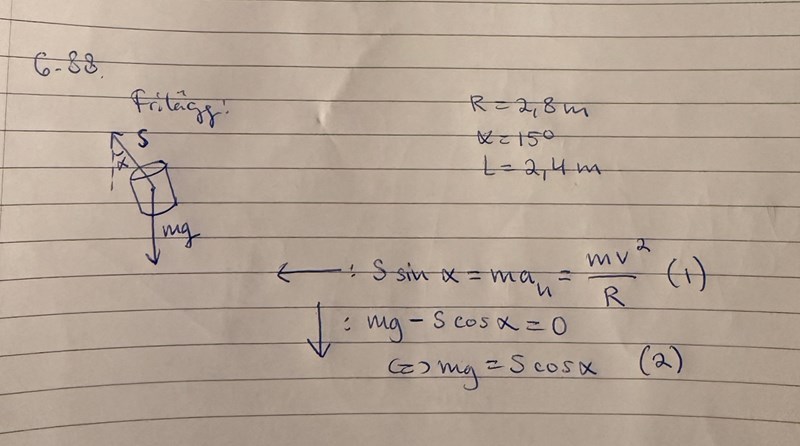 6-88.
Frilägg:
R = 2,8 m
S
α = 15°
α
L = 2,4 m
mg
← : S sin α = ma_n = mv²/R (1)
↓ : mg - S cos α = 0
(=) mg = S cos α (2)